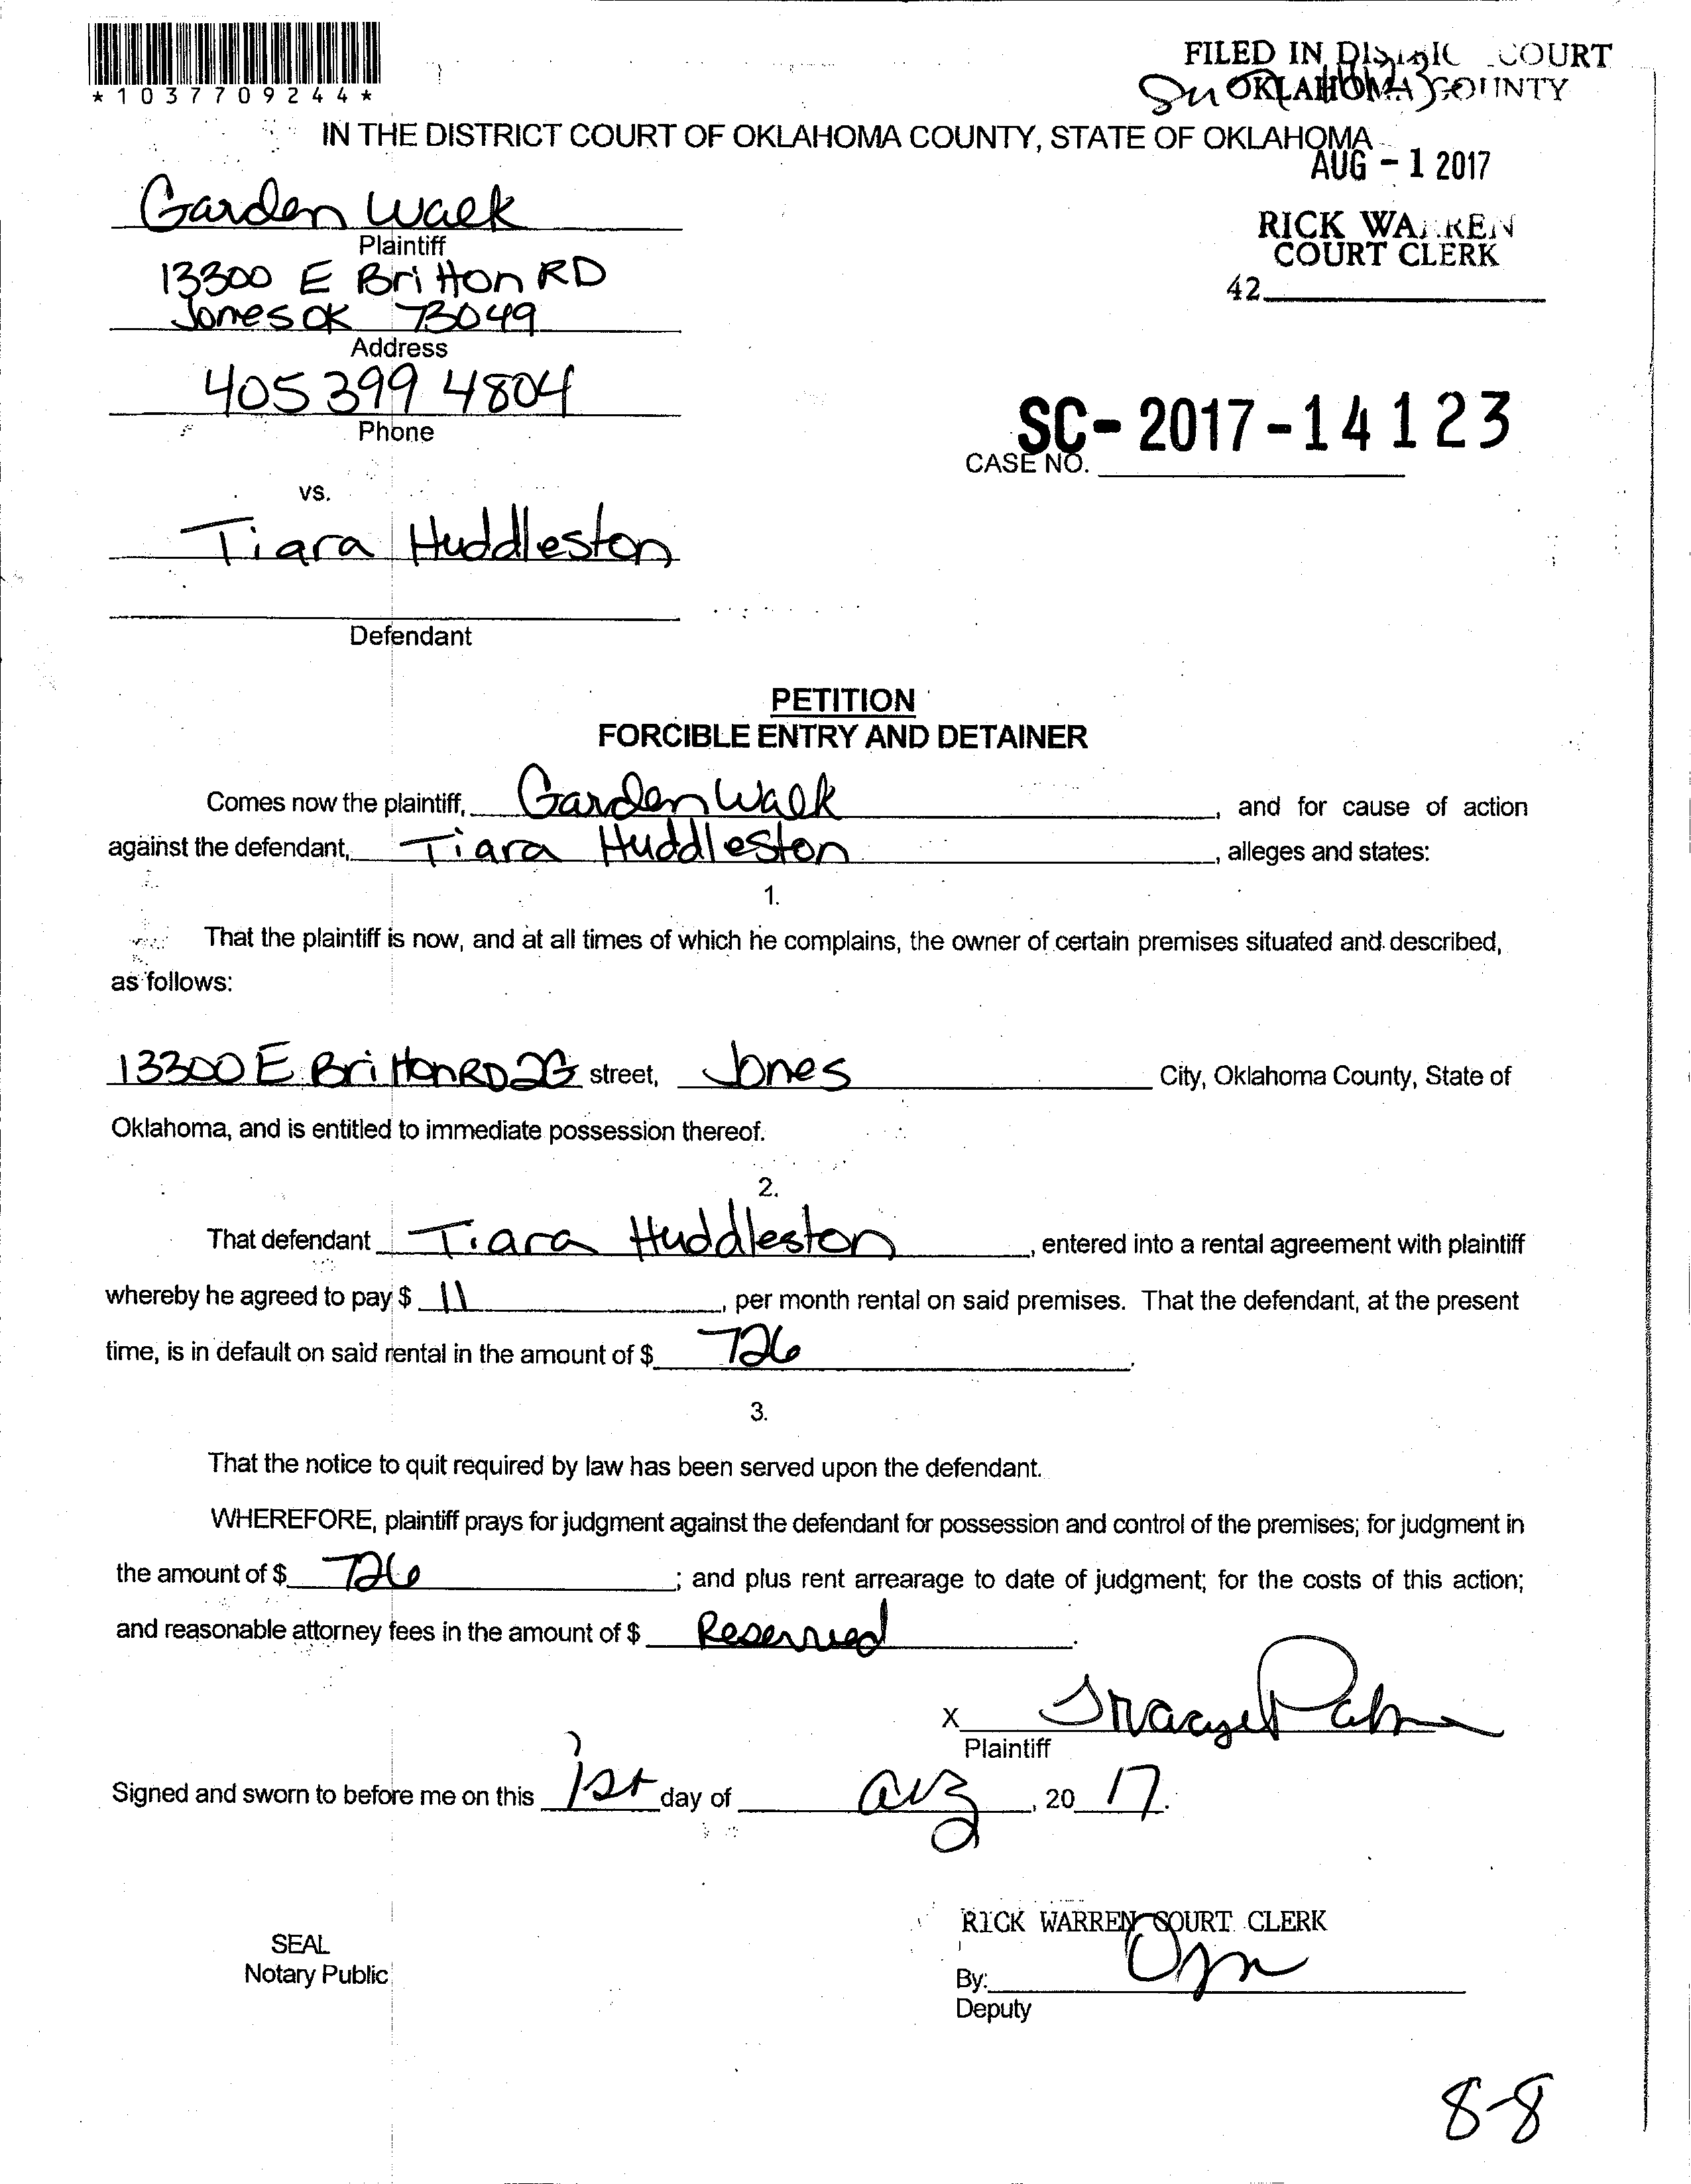 *1037709244*
FILED IN DISTRICT COURT
OKLAHOMA COUNTY
IN THE DISTRICT COURT OF OKLAHOMA COUNTY, STATE OF OKLAHOMA
AUG - 1 2017
Garden Walk
Plaintiff
RICK WARREN
COURT CLERK
42
13300 E Britton RD
Jones OK 73049
Address
405 399 4804
Phone
SC-2017-14123
CASE NO.
vs.
Tiara Huddleston
Defendant
PETITION
FORCIBLE ENTRY AND DETAINER
Comes now the plaintiff, Garden Walk, and for cause of action
against the defendant, Tiara Huddleston, alleges and states:
1.
That the plaintiff is now, and at all times of which he complains, the owner of certain premises situated and described,
as follows:
13300 E Britton RD 2G street, Jones City, Oklahoma County, State of
Oklahoma, and is entitled to immediate possession thereof.
2.
That defendant Tiara Huddleston, entered into a rental agreement with plaintiff
whereby he agreed to pay $ 11, per month rental on said premises. That the defendant, at the present
time, is in default on said rental in the amount of $ 726.
3.
That the notice to quit required by law has been served upon the defendant.
WHEREFORE, plaintiff prays for judgment against the defendant for possession and control of the premises; for judgment in
the amount of $ 726; and plus rent arrearage to date of judgment; for the costs of this action;
and reasonable attorney fees in the amount of $ Reserved.
X
Plaintiff
Signed and sworn to before me on this 1st day of Aug, 2017.
RICK WARREN COURT CLERK
SEAL
Notary Public
By:
Deputy
8-8